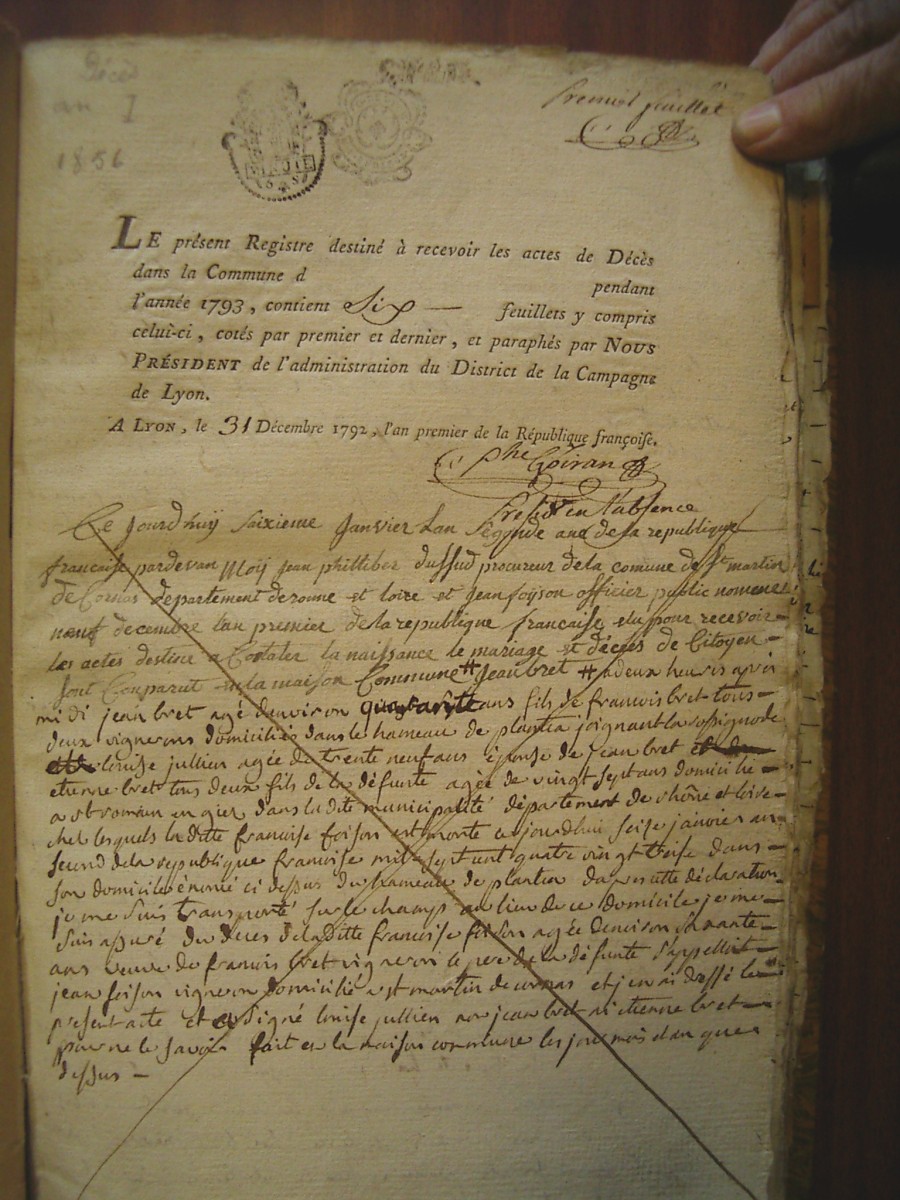 Décès
an I
1856
Premier feuillet
LE présent Registre destiné à recevoir les actes de Décès
dans la Commune d pendant
l'année 1793, contient Six feuillets y compris
celui-ci, cotés par premier et dernier, et paraphés par NOUS
PRÉSIDENT de l'administration du District de la Campagne
de Lyon.
A LYON, le 31 Décembre 1792, l'an premier de la République françoise.
phe Goiran
Presidt en l'absence
Ce Jourdhuy Saixieme Janvier Lan Segonde ane de la republique
francaise pardevan Moy jean philliber dussud procureur de la comune de St martin
de Cornas departement de ronne et loire et Jean foijson officier public nomene
neuf decembre l'an premier de la republique francaise elu pour recevoir
les actes destine a Costater la naissance le mariage et décés de Citoyen
sont Comparut en la maison Commune # Jean bret # a deux heures aprés
mi di jean bret agé denviron quarante ans fils de francois bret tous
deux vignerons domicilies dans le hameau de plantin joignant la rossignole
louise jullien agée de trente neuf ans épouse de jean bret
etienne bret tous deux fils de la défunte agée de vingt sept ans domicilié
a st romain en gier dans la dite municipalité département de rhône et loire
ches lesquels la ditte francoise foison est morte ce jourdhui seise janvier an
second de la republique francoise mil sept cent quatre vingt treise dans
son domicile énoncé ci dessus du hameau de plantin dapres cette déclaration
je me suis transporté sur le champ au lieu de ce domicile je me
suis assuré du déces de la Ditte francoise foison agée denviron
ans veuve de francois bret vigneron le pere de la défunte s'appelloit
jean foison vigneron domicilié a st martin de cornas et jen ai dressé le
present acte et signé louise jullien ni jean bret ni etienne bret
pour ne le savoir fait en la maison commune les jour mois et an que
dessus